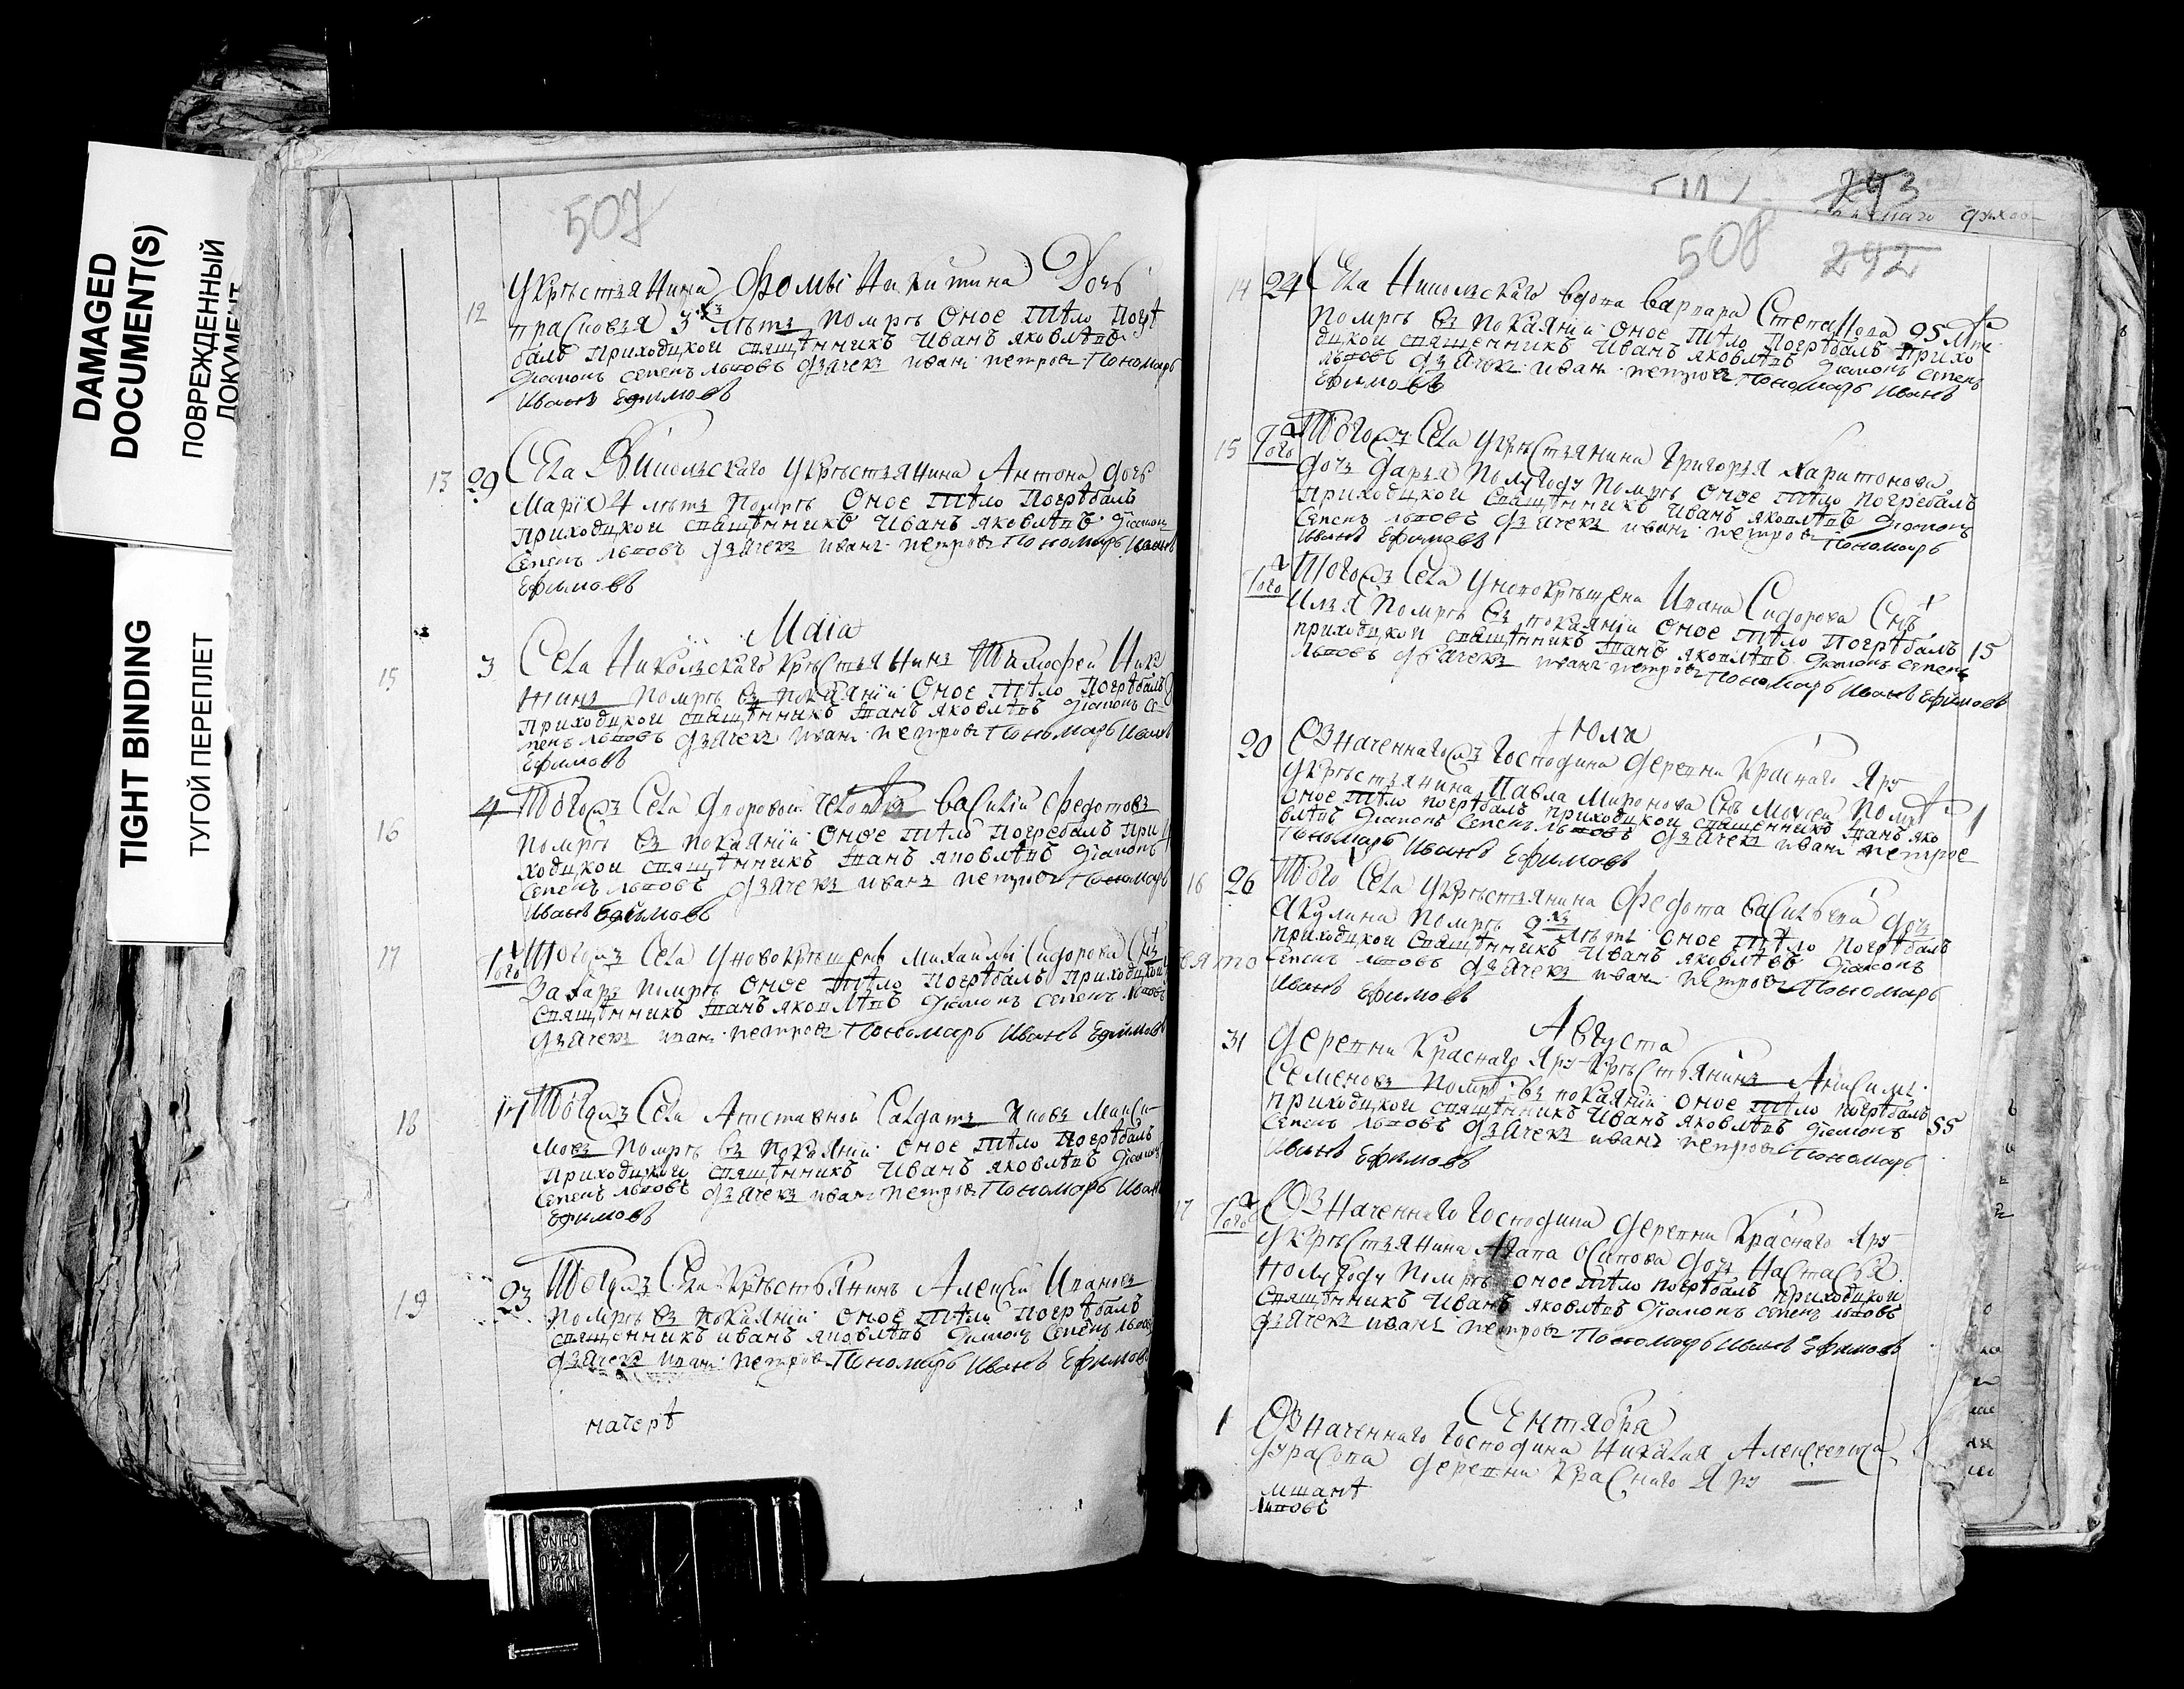 DAMAGED
DOCUMENT(S)
ПОВРЕЖДЕННЫЙ
ДОКУМЕНТ
TIGHT BINDING
ТУГОЙ ПЕРЕПЛЕТ
507
12 Укрѣстьянина Фомы Никитина Дочь
3 хъ лѣтъ помрѣ Оное тѣло погрѣ
балъ приходцкои священникъ Иванъ яковлѣвъ
Диаконъ Семенъ львовъ дьячекъ иванъ петровъ Пономарь
Иванъ Ефимовъ
13 29 Села Никольскаго укрѣстьянина Антона дочь
Марiя 4 лѣтъ помрѣ Оное тѣло погрѣбалъ
приходцкои священникъ Иванъ яковлѣвъ Диаконъ
Семенъ львовъ дьячекъ иванъ петровъ Пономарь Иванъ
Ефимовъ
Маiа
15 3 Села Никольскаго крѣстьянинъ Тимофеи Ники
тинъ помрѣ въ покаянiи Оное тѣло погрѣбалъ
приходцкои священникъ Iванъ яковлѣвъ Диаконъ Се
менъ львовъ дьячекъ иванъ петровъ Пономарь Иванъ
Ефимовъ
16 4 Тогожъ Села дворовои человѣкъ Василiи Федотовъ
помрѣ въ покаянiи Оное тѣло погребалъ при
ходцкои священникъ Iванъ яковлѣвъ Диаконъ
Семенъ львовъ дьячекъ иванъ петровъ Пономарь
Иванъ Ефимовъ
17 Того Тогожъ Села уновокрѣщена Михаилы Сидорова Снъ
Захаръ помрѣ Оное тѣло погрѣбалъ приходцкои
священникъ Iванъ яковлѣвъ Диаконъ Семенъ львовъ
дьячекъ иванъ петровъ Пономарь Иванъ Ефимовъ
18 Тогожъ Села Атставнои Салдатъ
помрѣ въ покаянiи Оное тѣло погрѣбалъ
приходцкои священникъ Иванъ яковлѣвъ Диаконъ
Семенъ львовъ дьячекъ иванъ петровъ Пономарь Иванъ
Ефимовъ
19 23 Тогожъ Села крѣстьянинъ Алексѣи Ивановъ
помрѣ въ покаянiи Оное тѣло погрѣбалъ
священникъ иванъ яковлѣвъ Диаконъ Семенъ львовъ
дьячекъ иванъ петровъ Пономарь Иванъ Ефимовъ
293
508 292
14 24 Села Никольскаго вдова Варвара Степанова 95 лѣ
помрѣ въ покаянiи Оное тѣло погрѣбалъ прихо
дцкои священникъ Иванъ яковлѣвъ Диаконъ Семенъ
львовъ дьячекъ иванъ петровъ Пономарь Иванъ
Ефимовъ
15 Того Тогожъ Села укрѣстьянина Григорья Харитонова
дочь Дарья полугоду помрѣ Оное тѣло погребалъ
приходцкои священникъ Иванъ яковлѣвъ Диаконъ
Семенъ львовъ дьячекъ иванъ петровъ Пономарь
Иванъ Ефимовъ
Того Тогожъ Села уновокрѣщена Ивана Сидорова Снъ
Илья помрѣ въ покаянiи Оное тѣло погрѣбалъ 15
приходцкои священникъ Iванъ яковлѣвъ Диаконъ Семенъ
львовъ дьячекъ иванъ петровъ Пономарь Иванъ Ефимовъ
Июля
20 Означеннагожъ Господина деревни Краснаго Яру
укрѣстьянина Павла Миронова Снъ Моисеи помрѣ 1
Оное тѣло погрѣбалъ приходцкои священникъ Iванъ яко
влѣвъ Диаконъ Семенъ львовъ дьячекъ иванъ петров
Пономарь Иванъ Ефимовъ
16 26 Того Села укрѣстьянина Федота Васильева дочь
Акулина помрѣ 2 хъ лѣтъ Оное тѣло погрѣбалъ
приходцкои священникъ Иванъ яковлѣвъ Диаконъ
Семенъ львовъ дьячекъ иванъ петровъ Пономарь
Иванъ Ефимовъ
Августа
31 Деревни Краснаго Яру Крѣстьянинъ Анисимъ
Семеновъ помрѣ въ покаянiи Оное тѣло погрѣбалъ
приходцкои священникъ Иванъ яковлѣвъ Диаконъ 55
Семенъ львовъ дьячекъ иванъ петровъ Пономарь
Иванъ Ефимовъ
17 Того Означеннаго Господина деревни Краснаго Яру
укрѣстьянина Агапа Осипова дочь Настасья
полугоду помрѣ оное тѣло погрѣбалъ приходцкои
священникъ Иванъ яковлѣвъ Диаконъ семенъ львовъ
дьячекъ иванъ петровъ Пономарь Иванъ Ефимовъ
Сентября
1 Означеннаго Господина Николая Алексѣевича
Дурасова деревни Краснаго Яру
львовъ